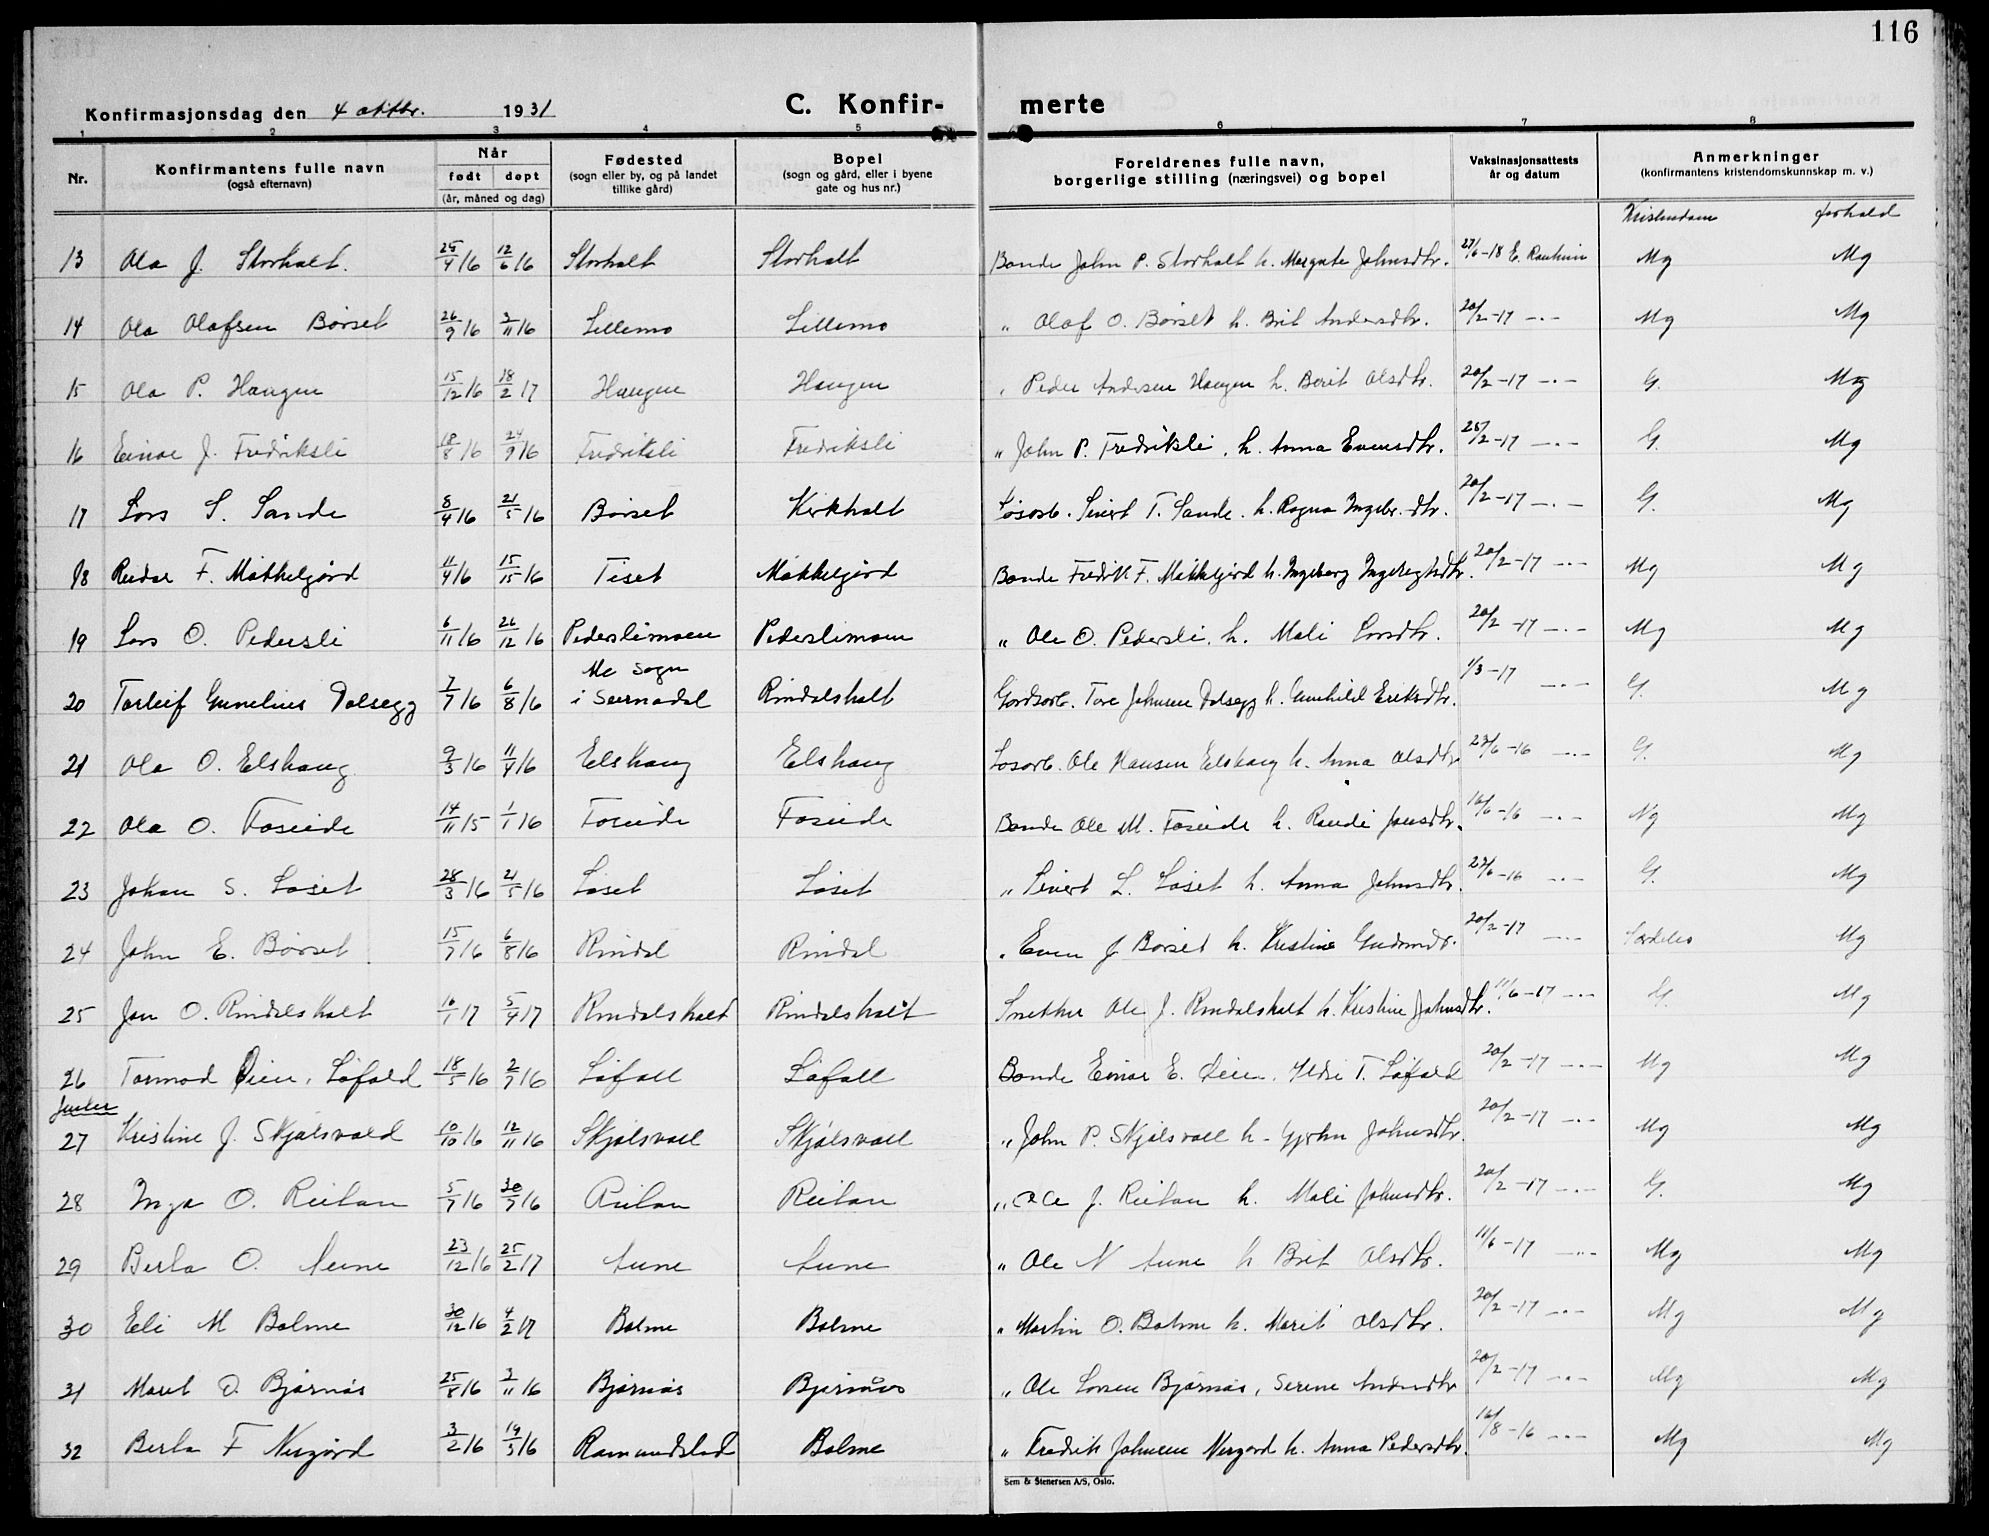 116
Konfirmasjonsdag den 4 oktbr. 1931 C. Konfir- merte
1 2 3 4 5 6 7 8
Nr. Konfirmantens fulle navn (også efternavn) Når født døpt (år, måned og dag) Fødested (sogn eller by, og på landet tillike gård) Bopel (sogn og gård, eller i byene gate og hus nr.) Foreldrenes fulle navn, borgerlige stilling (næringsvei) og bopel Vaksinasjonsattests år og datum Anmerkninger (konfirmantens kristendomskunnskap m. v.)
Kristendom forhold
13 Ola J. Storholt. 25/4 16 12/6 16 Storholt Storholt Bonde John P. Storholt h. Margrete Johnsdtr. 27/6-18 E. Mg Mg
14 Ola Olafsen Børset 26/9 16 3/11 16 Lillemo Lillemo " Olaf O. Børset h. Brit Andersdtr. 20/2-17 -"- Mg Mg
15 Ola P. Haugen 15/12 16 18/2 17 Haugen Haugen " Peder Andersen Haugen h. Berit Olsdtr. 20/2-17 -"- G. Mg
16 Einar J. Fredriksli 18/8 16 24/9 16 Fredriksli Fredriksli " John P. Fredriksli, h. Anna Evensdtr. 25/2-17 -"- G. Mg
17 Lars S. Sande 8/4 16 21/5 16 Børset Kirkholt Løsarb. Sivert T. Sande. h. Ragna Ingebr.dtr. 20/2-17 -"- G. Mg
18 Reidar F. Møkkelgård 11/4 16 15/15 16 Tiset Møkkelgård Bonde Fredrik F. Møkkelgård h. Ingeborg Ingebrigtsdtr. 20/2-17 -"- Mg Mg
19 Lars O. Pedersli 6/11 16 26/12 16 Pederslimoen Pederslimoen " Ole O. Pedersli, h. Mali Larsdtr. 20/2-17 -"- Mg Mg
20 Torleif Gunelius Dalsegg 7/7 16 6/8 16 Mo sogn i Surnadal Rindalsholt Gårdsarb. Tore Johnsen Dalsegg h. Gunhild Eriksdtr. 1/3-17 -"- G. Mg
21 Ola O. Elshaug 9/3 16 11/4 16 Elshaug Elshaug Løsarb. Ole Hansen Elshaug h. Anna Olsdtr 23/6-16 -"- G. Mg
22 Ola O. Foseide 14/11 15 1/1 16 Foseide Foseide Bonde Ole M. Foseide h. Randi Jonsdtr. 16/6-16 -"- Ng Mg
23 Johan S. Løset 28/3 16 21/5 16 Løset Løset " Sivert L. Løset h. Anna Johnsdtr. 22/6-16 -"- G. Mg
24 John E. Børset 15/7 16 6/8 16 Rindal Rindal " Even J Børset h. Kristine Gudmdr. 20/2-17 -"- Særdeles Mg
25 Jon O. Rindalsholt 16/1 17 5/4 17 Rindalsholt Rindalsholt Snekker Ole J. Rindalsholt h. Kristine Johnsdtr. 11/6-17 -"- G. Mg
26 Tormod Øien, Løfald 18/5 16 2/7 16 Løfall Løfall Bonde Einar E. Øien. Ildri T. Løfald 20/2-17 -"- Mg Mg
Jenter
27 Kristine J. Skjølsvold 10/10 16 12/11 16 Skjølsvoll Skjølsvoll " John P. Skjølsvoll h. Johnsdtr. 20/2-17 -"- Mg Mg
28 Inga O. Reitan 5/7 16 30/7 16 Reitan Reitan " Ole J. Reitan h. Mali Johnsdtr. 20/2-17 -"- G. Mg
29 Berta O. Aune 23/12 16 25/2 17 Aune Aune " Ole N Aune h Brit Olsdtr. 11/6-17 -"- Mg Mg
30 Eli M Bolme 30/12 16 4/2 17 Bolme Bolme " Martin O. Bolme h. Marit Olsdtr. 20/2-17 -"- Mg Mg
31 Marit O. Bjørnås 25/8 16 3/11 16 Bjørnås Bjørnås " Ole Larsen Bjørnås, Serine Andersdtr 20/2-17 -"- Mg Mg
32 Berta F Nergård 3/2 16 19/3 16 Romundstad Bolme " Fredrik Johnsen Nergard h. Anna Pedersdtr. 16/8-16 -"- Mg Mg
Sem & Stenersen A/S, Oslo.